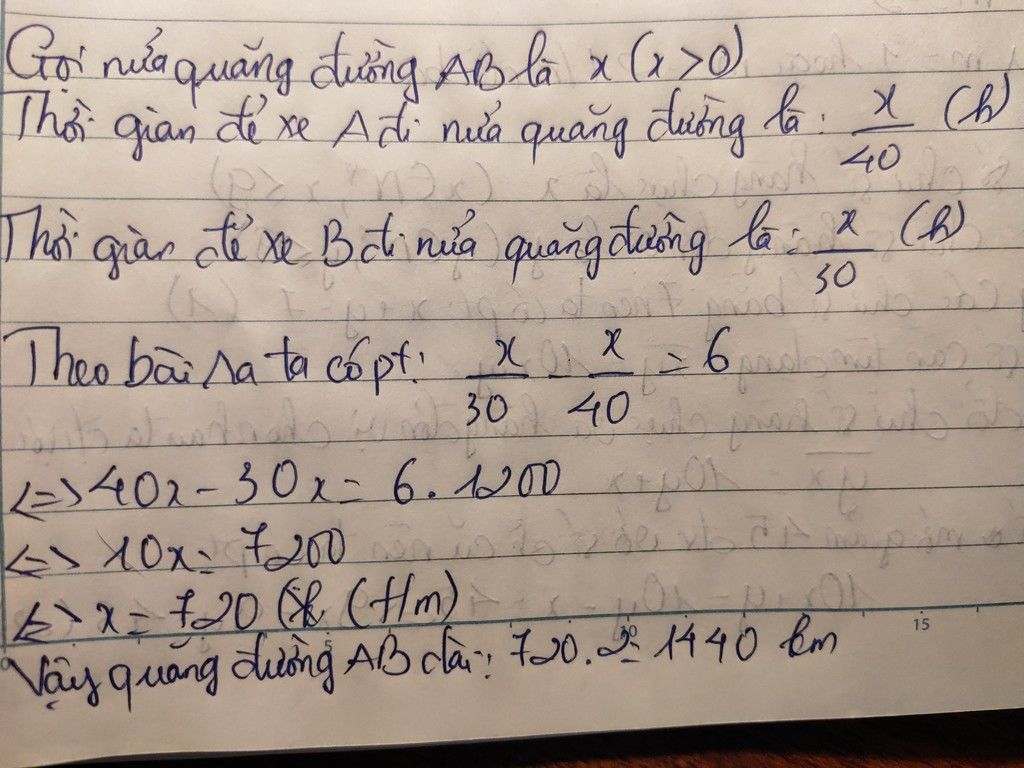 Gọi nửa quãng đường AB là x (x>0)
Thời gian để xe A đi nửa quãng đường là: x/40 (h)
Thời gian để xe B đi nửa quãng đường là: x/30 (h)
Theo bài ra ta có pt: x/30 - x/40 = 6
<=> 40x - 30x = 6.1200
<=> 10x = 7200
<=> x = 720 (km)
15
Vậy quãng đường AB dài: 720.2 = 1440 km